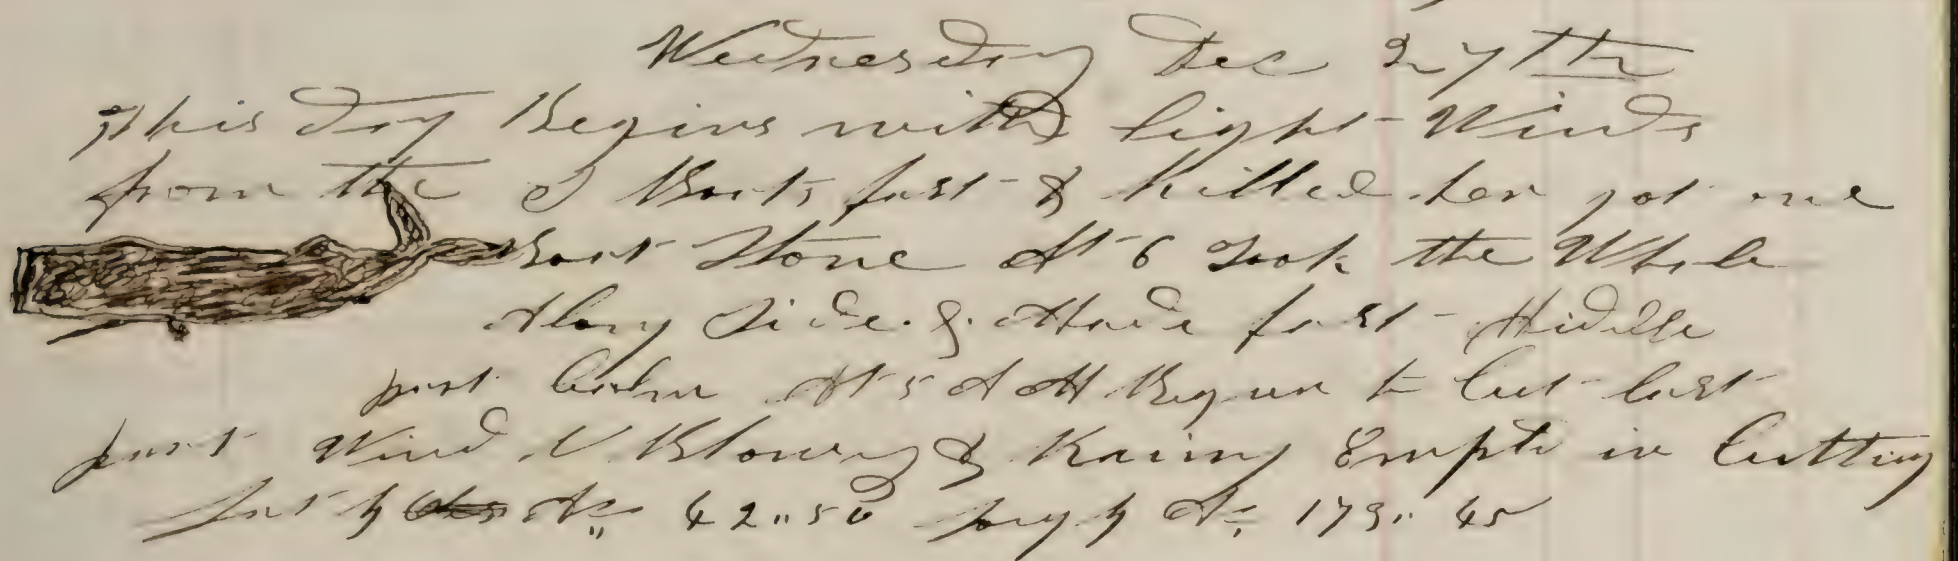 Wednesday Dec 27th
This day Begins with light Winds
from the S Boats fast & Killed her got one
Boat Stove At 6 Took the Whale
Along Side & Made fast Middle
part Calm At 5 A M Begun to Cut last
part Wind N Blowing & Raining Emploid in Cutting
Lat by 42..50 Long by 179.. 45